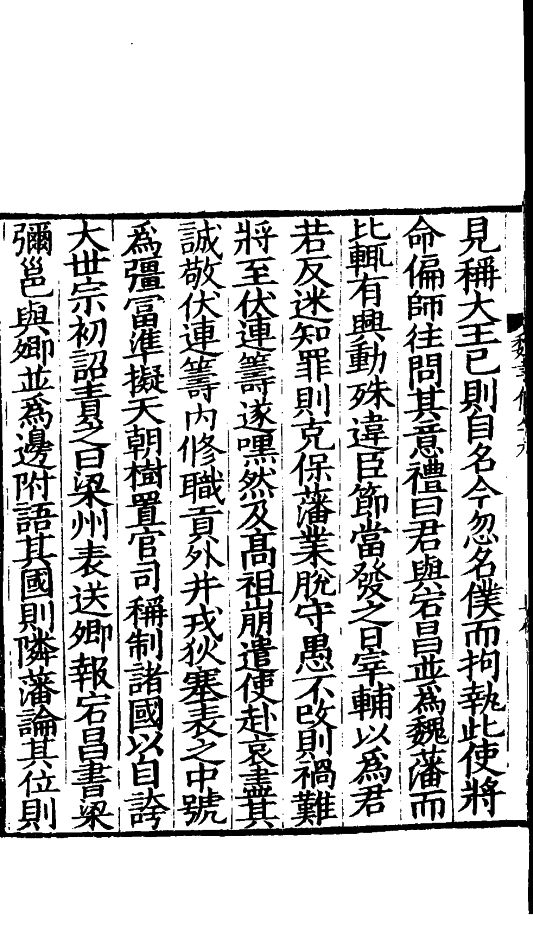 見稱大王已則自名今忽名僕而拘執此使將
命偏師往問其意禮曰君與宕昌並為魏藩而
比輒有興動殊違臣節當發之日宰輔以為君
若反迷知罪則克保藩業脫守愚不改則禍難
將至伏連籌遂嘿然及髙祖崩遣使赴哀盡其
誠敬伏連籌內修職貢外并戎狄塞表之中號
為彊富準擬天朝樹置官司稱制諸國以自誇
大世宗初詔責之曰梁州表送卿報宕昌書梁
彌邕與卿並為邊附語其國則隣藩論其位則